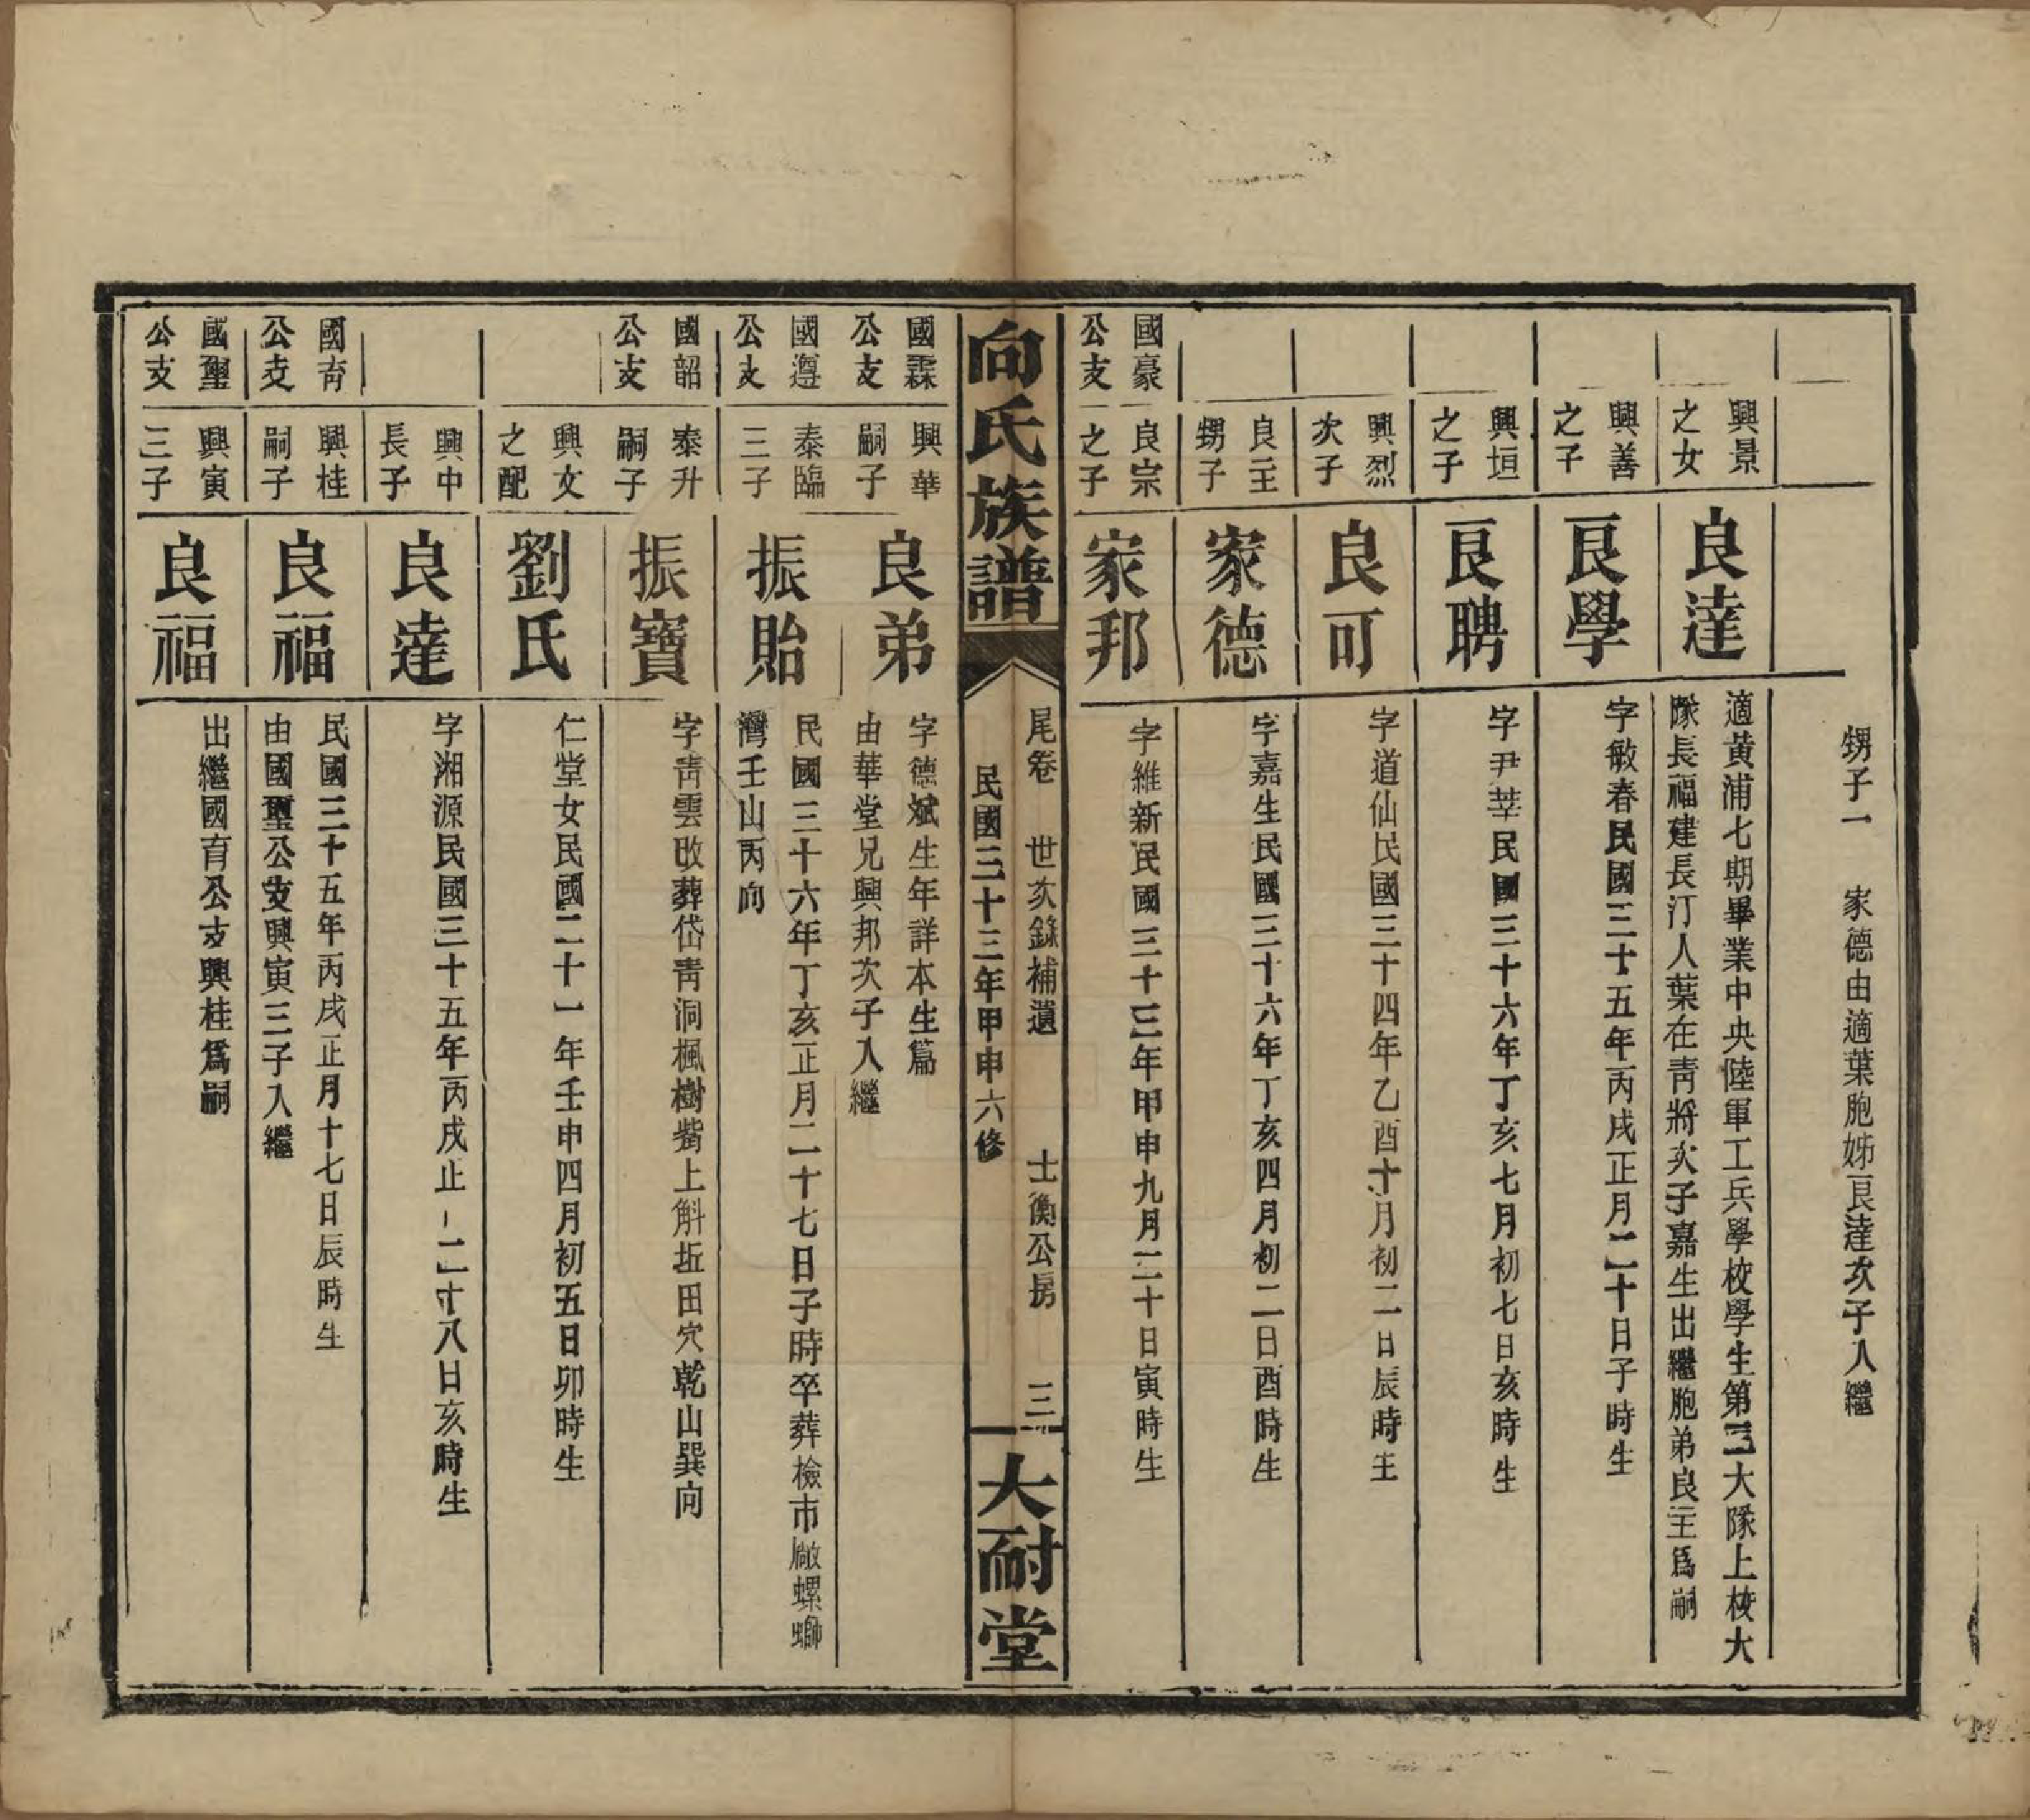 甥子一　家德由適葉胞姊良達次子入繼
興景
之女
良達
適黃浦七期畢業中央陸軍工兵學校學生第三大隊上校大
隊長福建長汀人葉在靑將次子嘉生出繼胞弟良主爲嗣
興善
之子
良學
字敏春民國三十五年丙戌正月二十日子時生
興垣
之子
良聘
字尹莘民國三十六年丁亥七月初七日亥時生
興烈
次子
良可
字道仙民國三十四年乙酉十月初二日辰時生
良主
甥子
家德
字嘉生民國三十六年丁亥四月初二日酉時生
國豪
公支
良宗
之子
家邦
字維新民國三十三年甲申九月二十日寅時生
向氏族譜
尾卷　世次錄補遺　士衡公房　三
民國三十三年甲申六修
大耐堂
國霖
公支
興華
嗣子
良弟
字德斌生年詳本生篇
由華堂兄興邦次子入繼
國遵
公支
泰臨
三子
振貽
民國三十六年丁亥正月二十七日子時卒葬檢市廠螺螄
灣壬山丙向
國韶
公支
泰升
嗣子
振寶
字靑雲改葬岱靑洞楓樹嘴上斛坵田穴乾山巽向
興文
之配
劉氏
仁堂女民國二十一年壬申四月初五日卯時生
興中
長子
良達
字湘源民國三十五年丙戌正二十八日亥時生
國育
公支
興桂
嗣子
良福
民國三十五年丙戌正月十七日辰時生
由國璽公支興寅三子入繼
國璽
公支
興寅
三子
良福
出繼國育公支興桂爲嗣